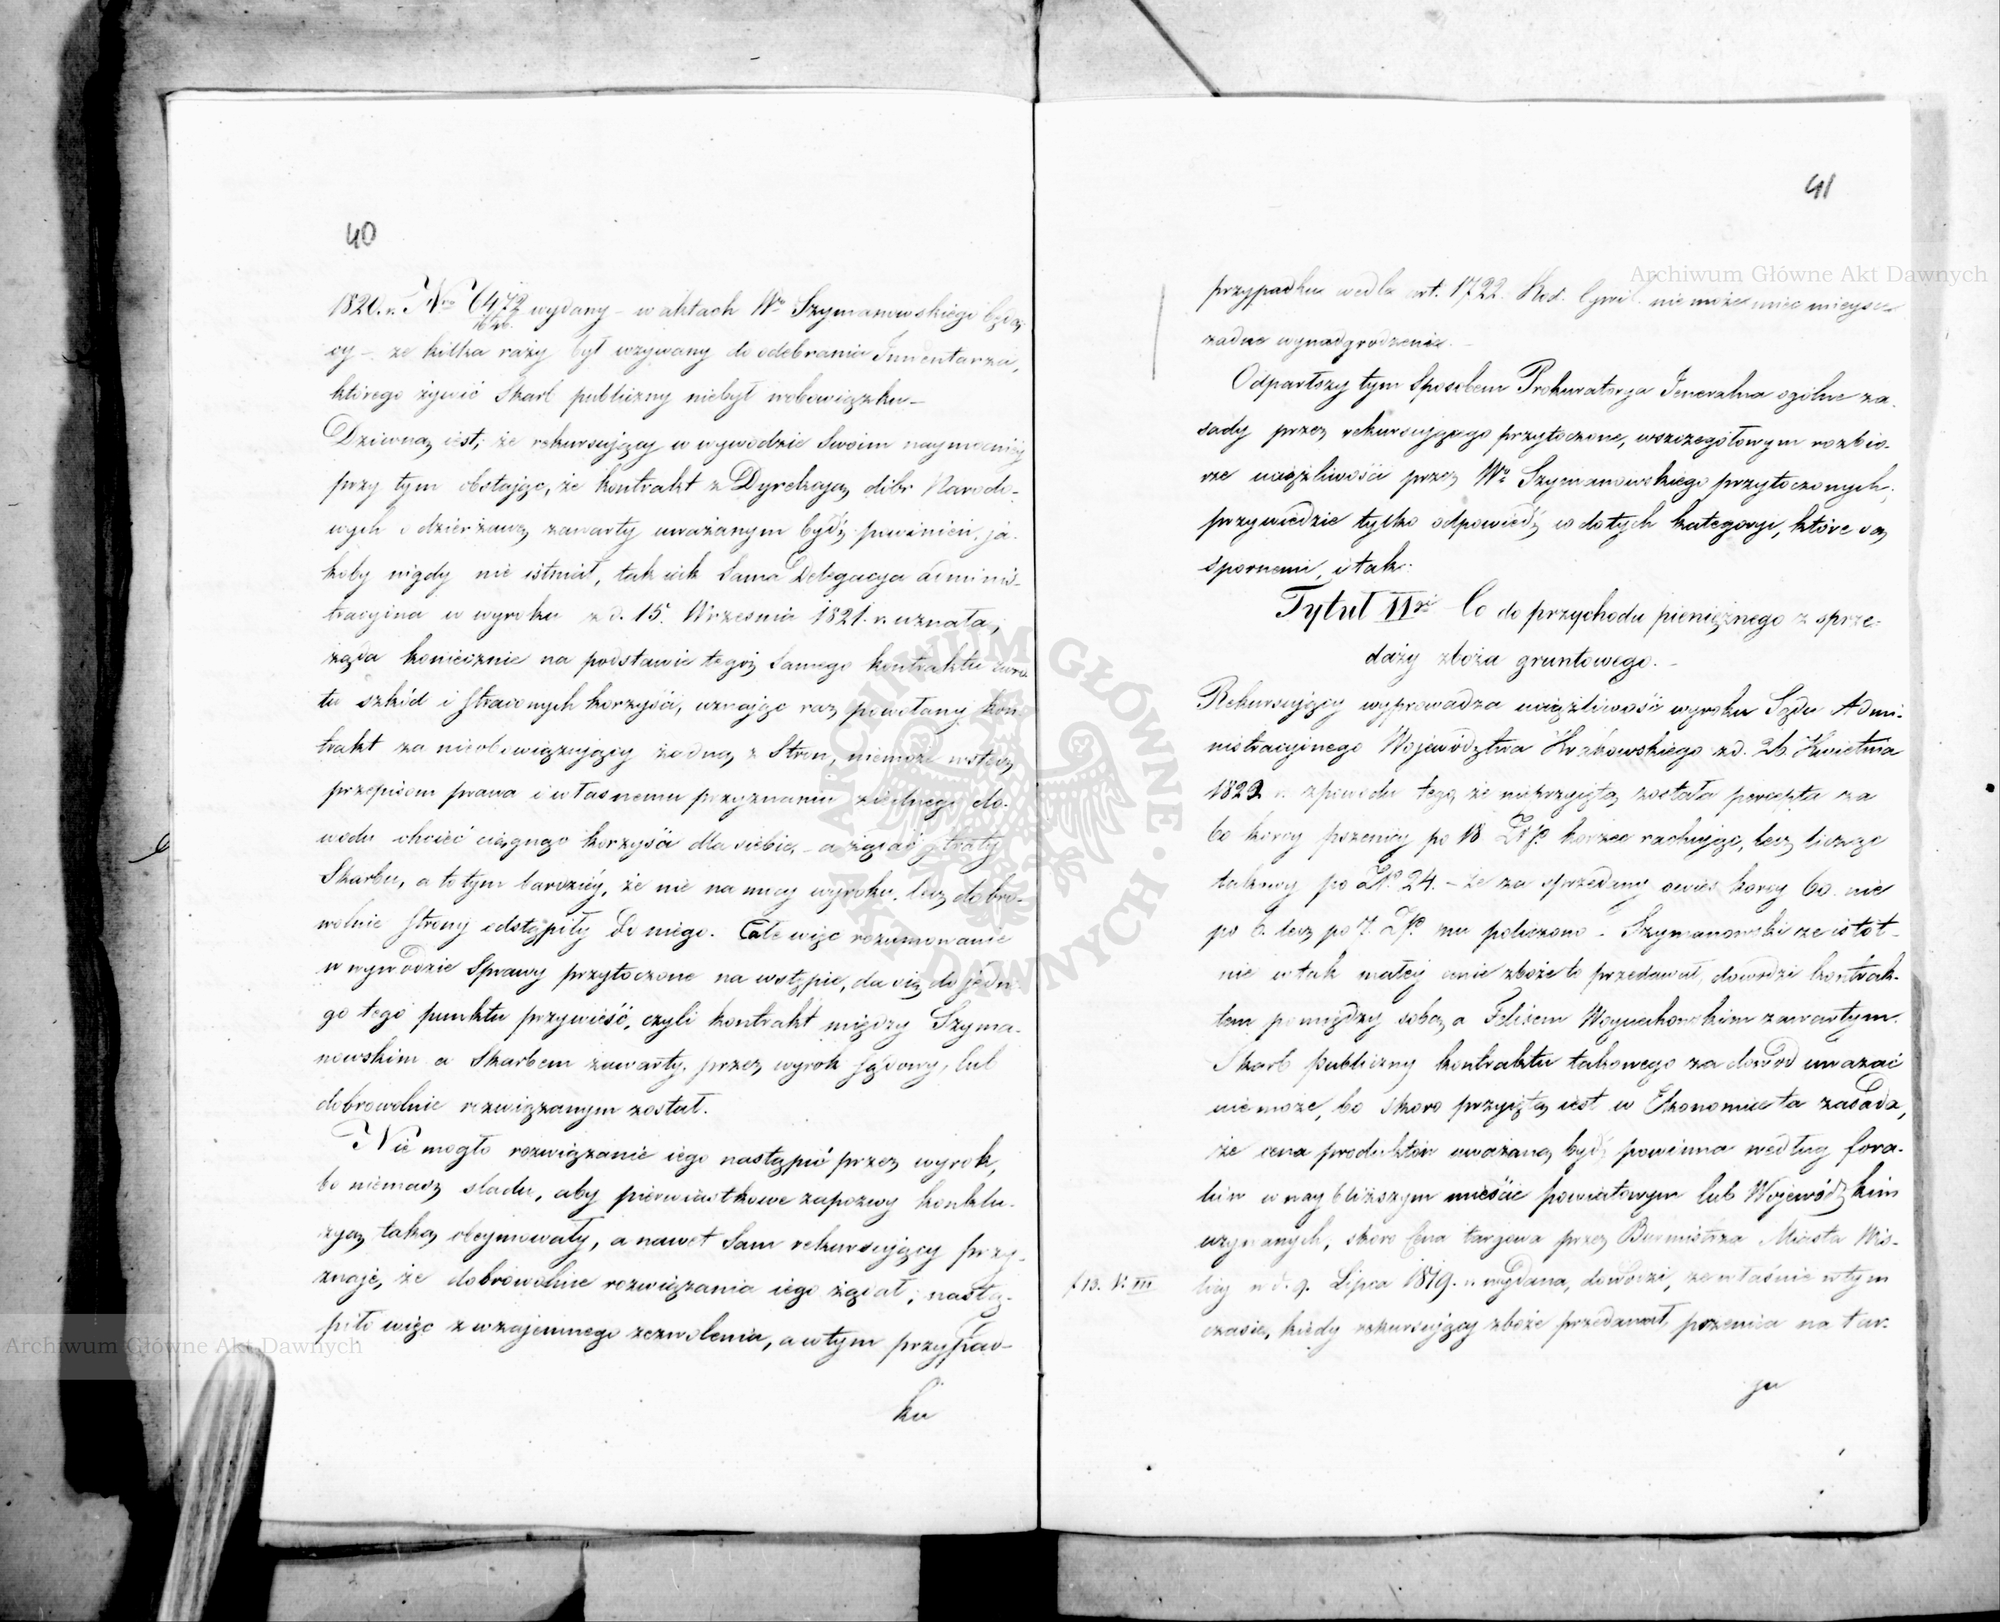 40
1820. r. Nro 6472 wydany – w aktach Wo Szymanowskiego będą
cy – że kilka razy był wzywany do odebrania Inwentarza,
którego żywić Skarb publiczny niebył w obowiązku –
Dziwną iest, że rekursujący w wywodzie Swoim naymocniéy
przy tym obstając, że kontrakt z Dyrekcyą dóbr Narodo-
wych o dzierżawę zawarty uważanym bydź powinien, ja-
koby nigdy nie istniał, tak iak Sama Delegacya Adminis-
tracyina w wyroku z d. 15. Września 1821. r. uznała,
żąda koniecznie na podstawie tegoż Samego kontraktu zwro
tu szkód i straconych korzyści, uznając raz powołany kon
trakt za nieobowiązujący żadną z Stron, niemoże wstecz
przepisom prawa i własnemu przyznaniu żadnego do-
wodu chcieć ciągnąć korzyści dla siebie, a żądać straty
Skarbu, a to tym bardziéy, że nie na mocy wyroku, lecz dobro-
wolnie strony odstąpiły od niego. Całe więc rozumowanie
w wywodzie Sprawy przytoczone na wstępie, da się do jedne
go tego punktu przywieść, czyli kontrakt między Szyma-
nowskim a Skarbem zawarty, przez wyrok sądowy, lub
dobrowolnie rozwiązanym został.
Nie mogło rozwiązanie iego nastąpić przez wyrok,
bo niemasz sladu, aby pierwiastkowe zapozwy konklu-
zyą taką obeymowały, a nawet Sam rekursujący przy-
znaje, że dobrowolnie rozwiązania iego żądał, nastą-
piło więc z wzajemnego zezwolenia, a w tym przypad-
ku
41
przypadku wedle art. 1722. Kod. Cywil. nie może mieć mieysca
żadne wynadgrodzenie. –
Odpartszy tym Sposobem Prokuratorya Jeneralna ogólne za-
sady przez rekursującego przytoczone, w szczegółowym rozbio-
rze uciążliwości przez Wo Szymanowskiego przytoczonych,
przywiedzie tylko odpowiedź co do tych kategoryi, które są
spornemi, i tak:
Tytuł IIgi Co do przychodu pieniężnego z sprze-
daży zboża gruntowego. –
Rekursujący wyprowadza uciążliwość wyroku Sądu Admi-
nistracyinego Województwa Krakowskiego z d. 26. Kwietnia
1822 r. z powodu tego, że nieprzyjęta została percepta za
60 korcy pszenicy po 18 Złp. korzec rachując, lecz licząc
takowy po Złp. 24. – że za sprzedany owies korcy 60. nie
po 6. lecz po 7. Złp. mu policzono – Szymanowski że istot-
nie w tak małéy cenie zboże to przedawał, dowodzi kontrak-
tem pomiędzy sobą a Felixem Woyciechowskim zawartym.
Skarb Publiczny kontraktu takowego za dowód uważać
nie może, bo skoro przyjętą iest w Ekonomice ta zasada,
że cena produktów uważaną bydź powinna według fora-
liów w naybliższym mieście powiatowym lub Wojewódzkim
uzyskanych, skoro Cena targowa przez Burmistrza Miasta Wiś-
f 13. V. III
licy w d. 9. Lipca 1819. r. wydana, dowodzi, że właśnie w tym
czasie, kiedy rekursujący zboże przedawał, pszenica na tar-
gu
Archiwum Główne Akt Dawnych
ARCHIWUM GŁÓWNE AKT DAWNYCH
Archiwum Główne Akt Dawnych